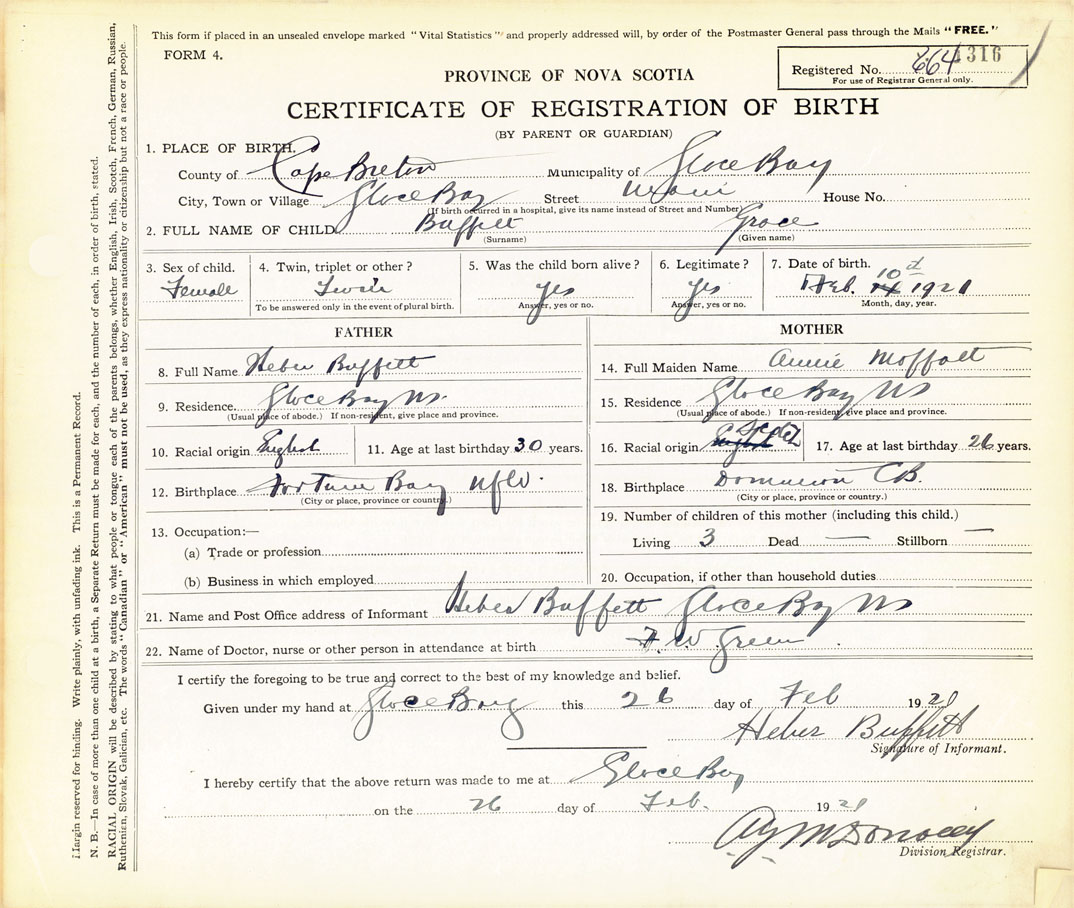 This form if placed in an unsealed envelope marked "Vital Statistics" and properly addressed will, by order of the Postmaster General pass through the Mails "FREE."
FORM 4.
316
Registered No. 664
For use of Registrar General only.
PROVINCE OF NOVA SCOTIA
CERTIFICATE OF REGISTRATION OF BIRTH
(BY PARENT OR GUARDIAN)
1. PLACE OF BIRTH.
County of Cape Breton Municipality of Glace Bay
City, Town or Village Glace Bay Street House No.
(If birth occurred in a hospital, give its name instead of Street and Number)
2. FULL NAME OF CHILD Buffett Grace
(Surname) (Given name)
3. Sex of child. 4. Twin, triplet or other? 5. Was the child born alive? 6. Legitimate? 7. Date of birth.
Female Twin yes yes Feb. 10 1921
To be answered only in the event of plural birth. Answer, yes or no. Answer, yes or no. Month, day, year.
FATHER
8. Full Name Heber Buffett
9. Residence Glace Bay NS.
(Usual place of abode.) If non-resident, give place and province.
10. Racial origin English 11. Age at last birthday 30 years.
12. Birthplace Fortune Bay Nfld.
(City or place, province or country.)
13. Occupation:—
(a) Trade or profession
(b) Business in which employed
MOTHER
14. Full Maiden Name Annie Moffatt
15. Residence Glace Bay NS
(Usual place of abode.) If non-resident, give place and province.
16. Racial origin 17. Age at last birthday 26 years.
18. Birthplace Dominion C.B.
(City or place, province or country.)
19. Number of children of this mother (including this child.)
Living 3 Dead — Stillborn —
20. Occupation, if other than household duties
21. Name and Post Office address of Informant Heber Buffett Glace Bay NS
22. Name of Doctor, nurse or other person in attendance at birth F. W Green
I certify the foregoing to be true and correct to the best of my knowledge and belief.
Given under my hand at Glace Bay this 26 day of Feb 1921
Heber Buffett
Signature of Informant.
I hereby certify that the above return was made to me at Glace Bay
on the 26 day of Feb. 1921
Division Registrar.
Margin reserved for binding. Write plainly, with unfading ink. This is a Permanent Record.
N. B.—In case of more than one child at a birth, a Separate Return must be made for each, and the number of each, in order of birth, stated.
RACIAL ORIGIN will be described by stating to what people or tongue each of the parents belongs, whether English, Irish, Scotch, French, German, Russian,
Ruthenien, Slovak, Galician, etc. The words "Canadian" or "American" must not be used, as they express nationality or citizenship but not a race or people.